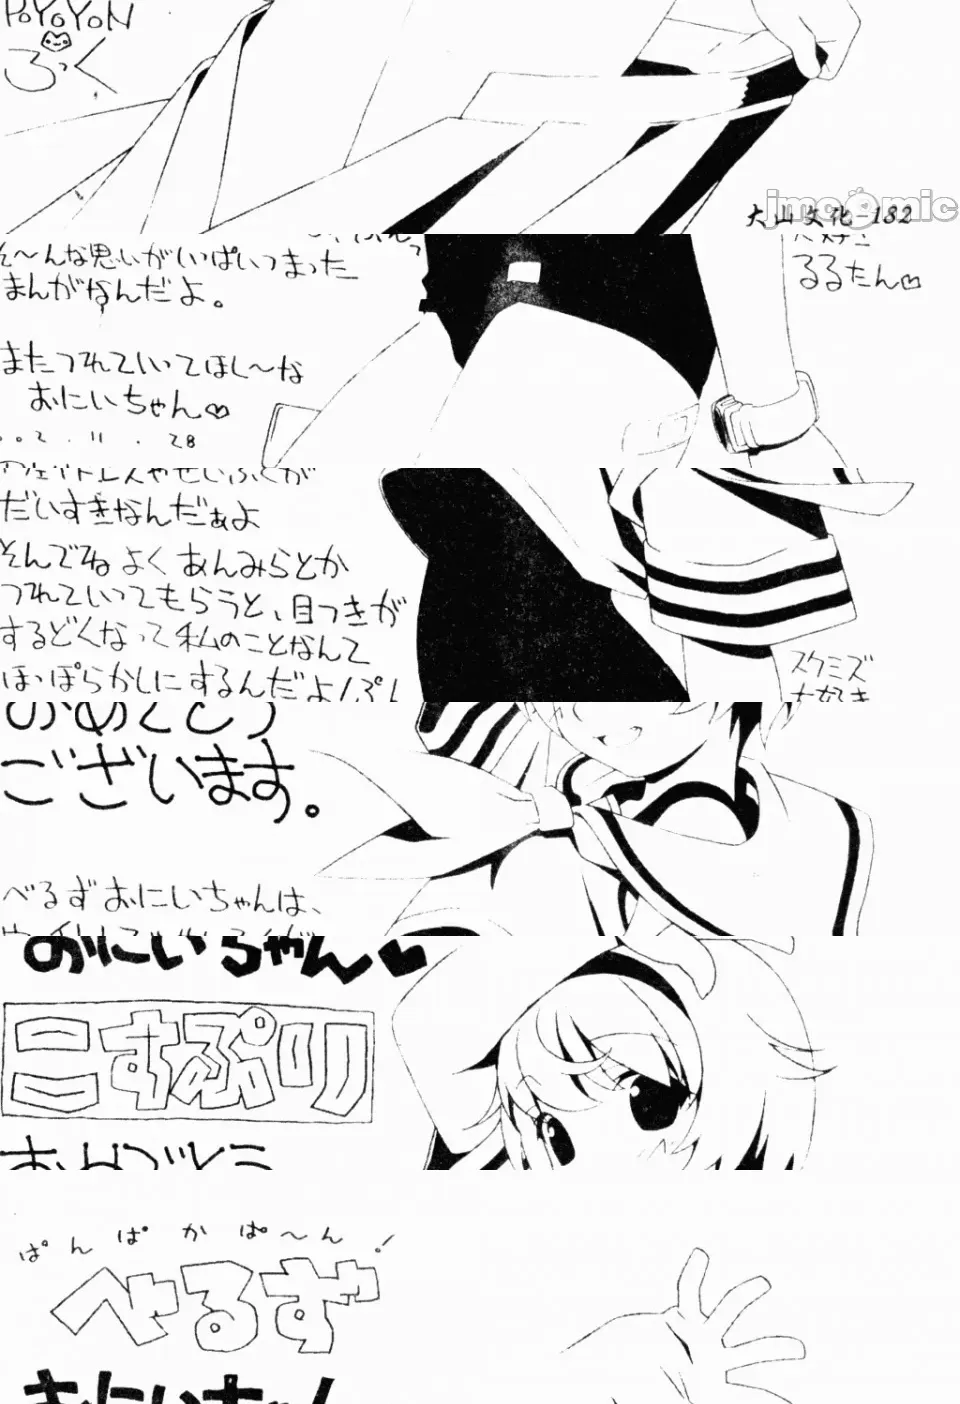 PoYoYoN
ろっく
大山文化-182
jmcomic
そ〜んな思いがいっぱいつまった
まんがなんだよ。
るるたん♡
またつれていってほし〜な
おにいちゃん♡
2002.11.28
だいすきなんだぁよ
そんでね よく あんみらとか
つれていってもらうと、目つきが
するどくなって私のことなんて
ほっぽらかしにするんだよ!ぷ!
スクミズ
大好き
おめでとう
ございます。
べるずおにいちゃんは、
おにいちゃん♥
こすぷり
ぱんぱかぱ〜ん!
べるず
おにいちゃん